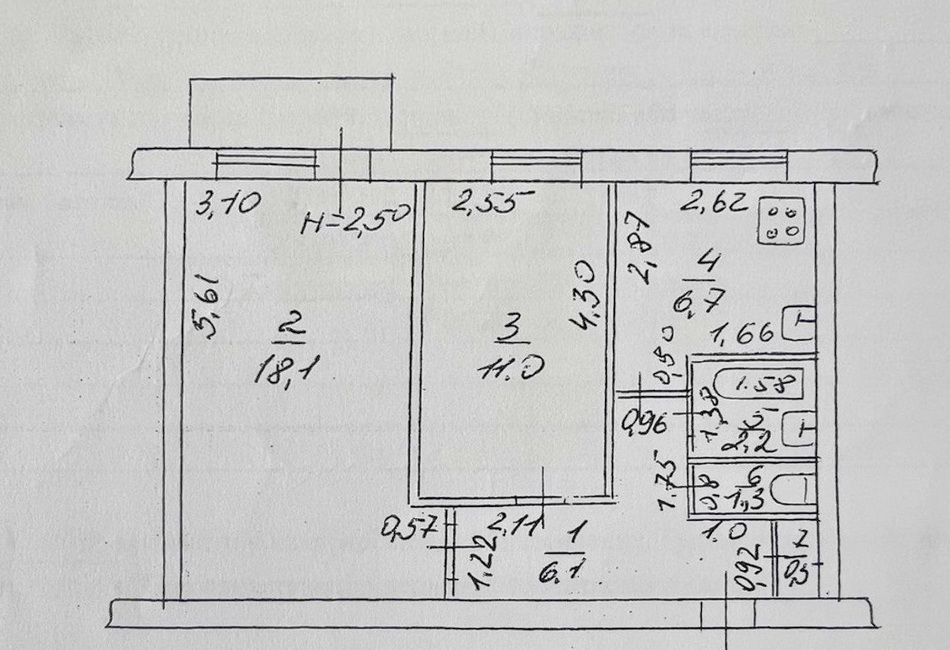 3,10
H=2,50
2,55
2,62
5,61
2
18,1
3
11.0
4,30
2,87
4
6,7
1,66
0,50
0,96
1,38
1.58
5
2,2
1.75
0,8
6
1,3
0,57
2,11
1,22
1
6.1
1.0
0,92
7
0,5